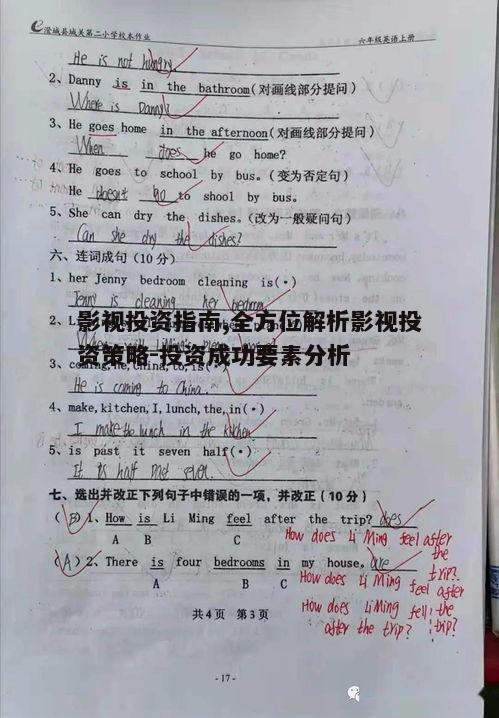 澄城县城关第二小学校本作业 六年级英语上册
He is not hungry
2、Danny is in the bathroom(对画线部分提问)
Where is Danny?
3、He goes home in the afternoon(对画线部分提问)
When does he go home?
4、He goes to school by bus。(变为否定句)
He doesn't go to shool by bus.
5、She can dry the dishes。(改为一般疑问句)
Can she dry the dishes?
六、连词成句(10分)
1、her Jenny bedroom cleaning is(•)
Jenny is cleaning her bedroom
影视投资指南,全方位解析影视投
2、L
资策略-投资成功要素分析
3、coming,he,China,to,is(
He is coming to China.
4、make,kitchen,I,lunch,the,in(•)
I make the lunch in the kitchen
5、is past it seven half(•)
It is half past seven.
七、选出并改正下列句子中错误的一项，并改正(10分)
(B)1、How is Li Ming feel after the trip? does
A B C
How does Li Ming feel after the trip?
(A)2、There is four bedrooms in my house。are
A B C
How does Li Ming feel after the trip?
How does Li Ming fell after the trip?
共4页 第3页
-17-